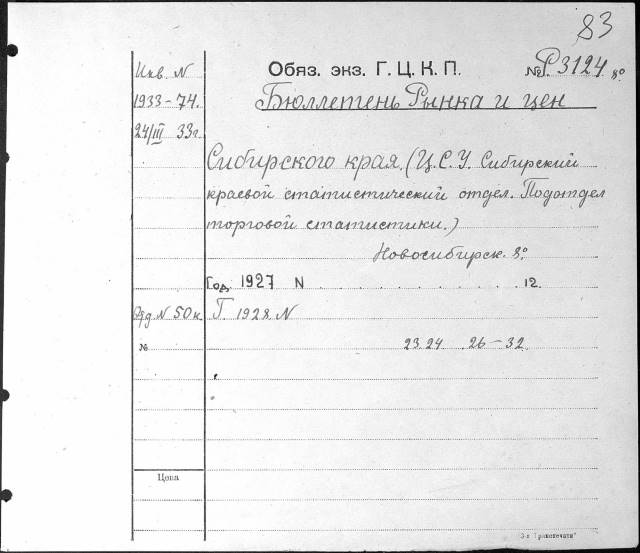 83
Инв. N
Обяз. экз. Г. Ц. К. П.
№ P3124. 8º
1933-74.
Бюллетень Рынка и цен
24/III 33г.
Сибирского края. (Ц. С. У. Сибирский
краевой статистический отдел. Подотдел
торговой статистики.)
Новосибирск. 8º
Год. 1927 N . . . . . . . . . . . . 12.
N 50к. Г. 1928. N
№ 23 24 26-32
Цена